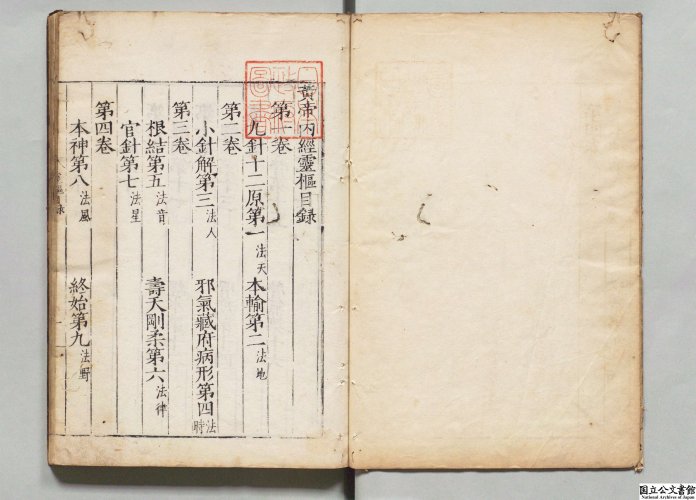 黃帝內經靈樞目錄
第一卷
九針十二原第一 法天 本輸第二 法地
第二卷
小針解第三 法人 邪氣藏府病形第四 法時
第三卷
根結第五 法音 壽夭剛柔第六 法律
官針第七 法星
第四卷
本神第八 法風 終始第九 法野
国立公文書館
National Archives of Japan